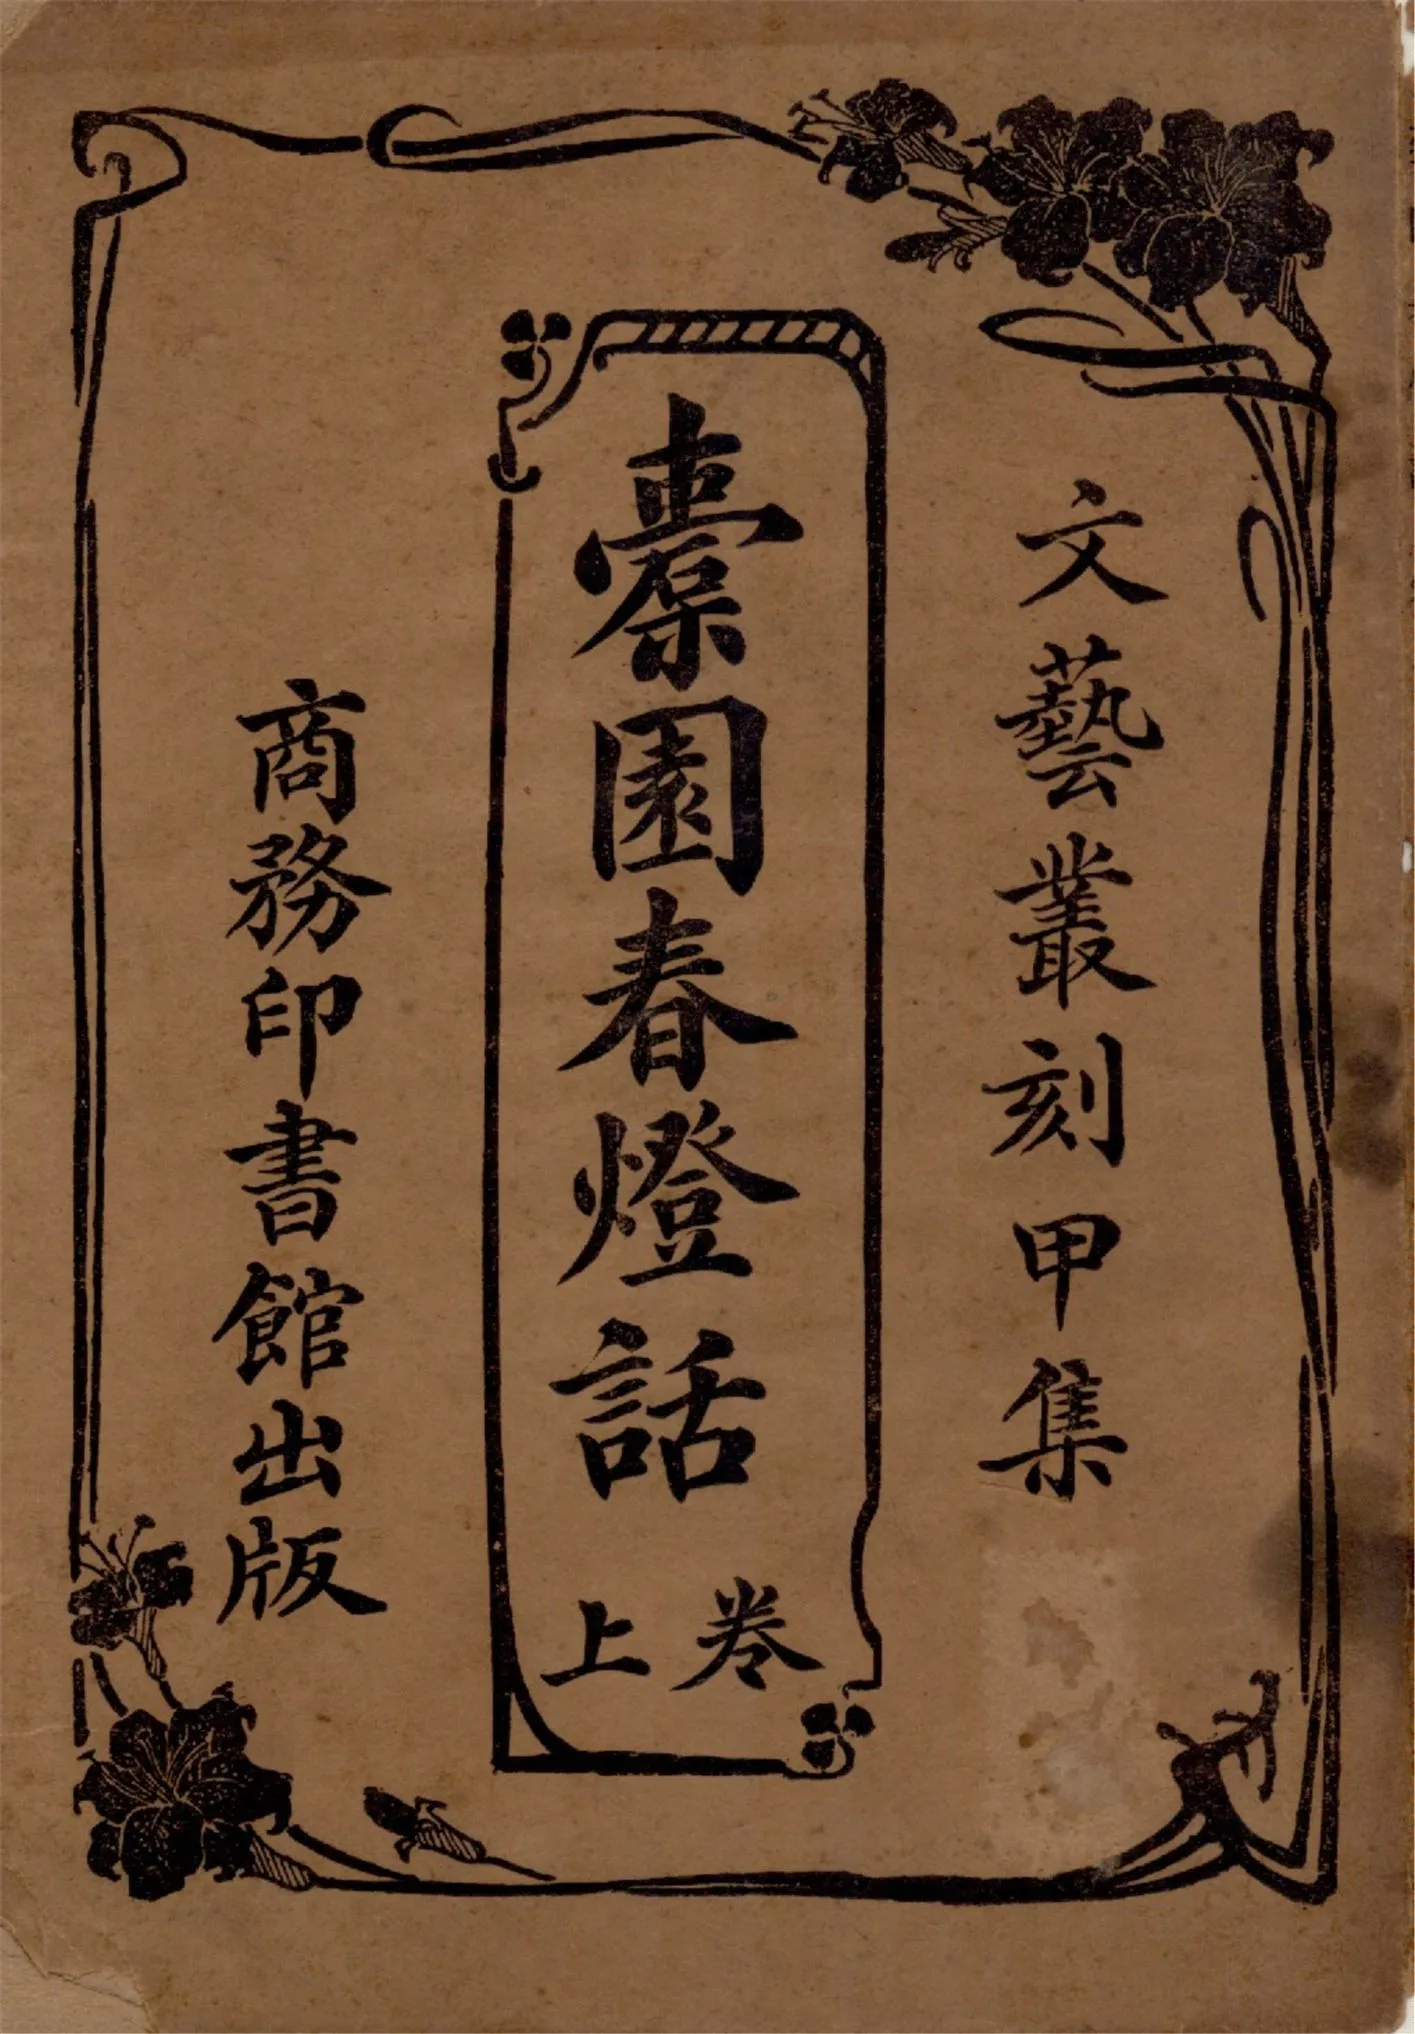 文藝叢刻甲集
橐園春燈話
卷上
商務印書館出版